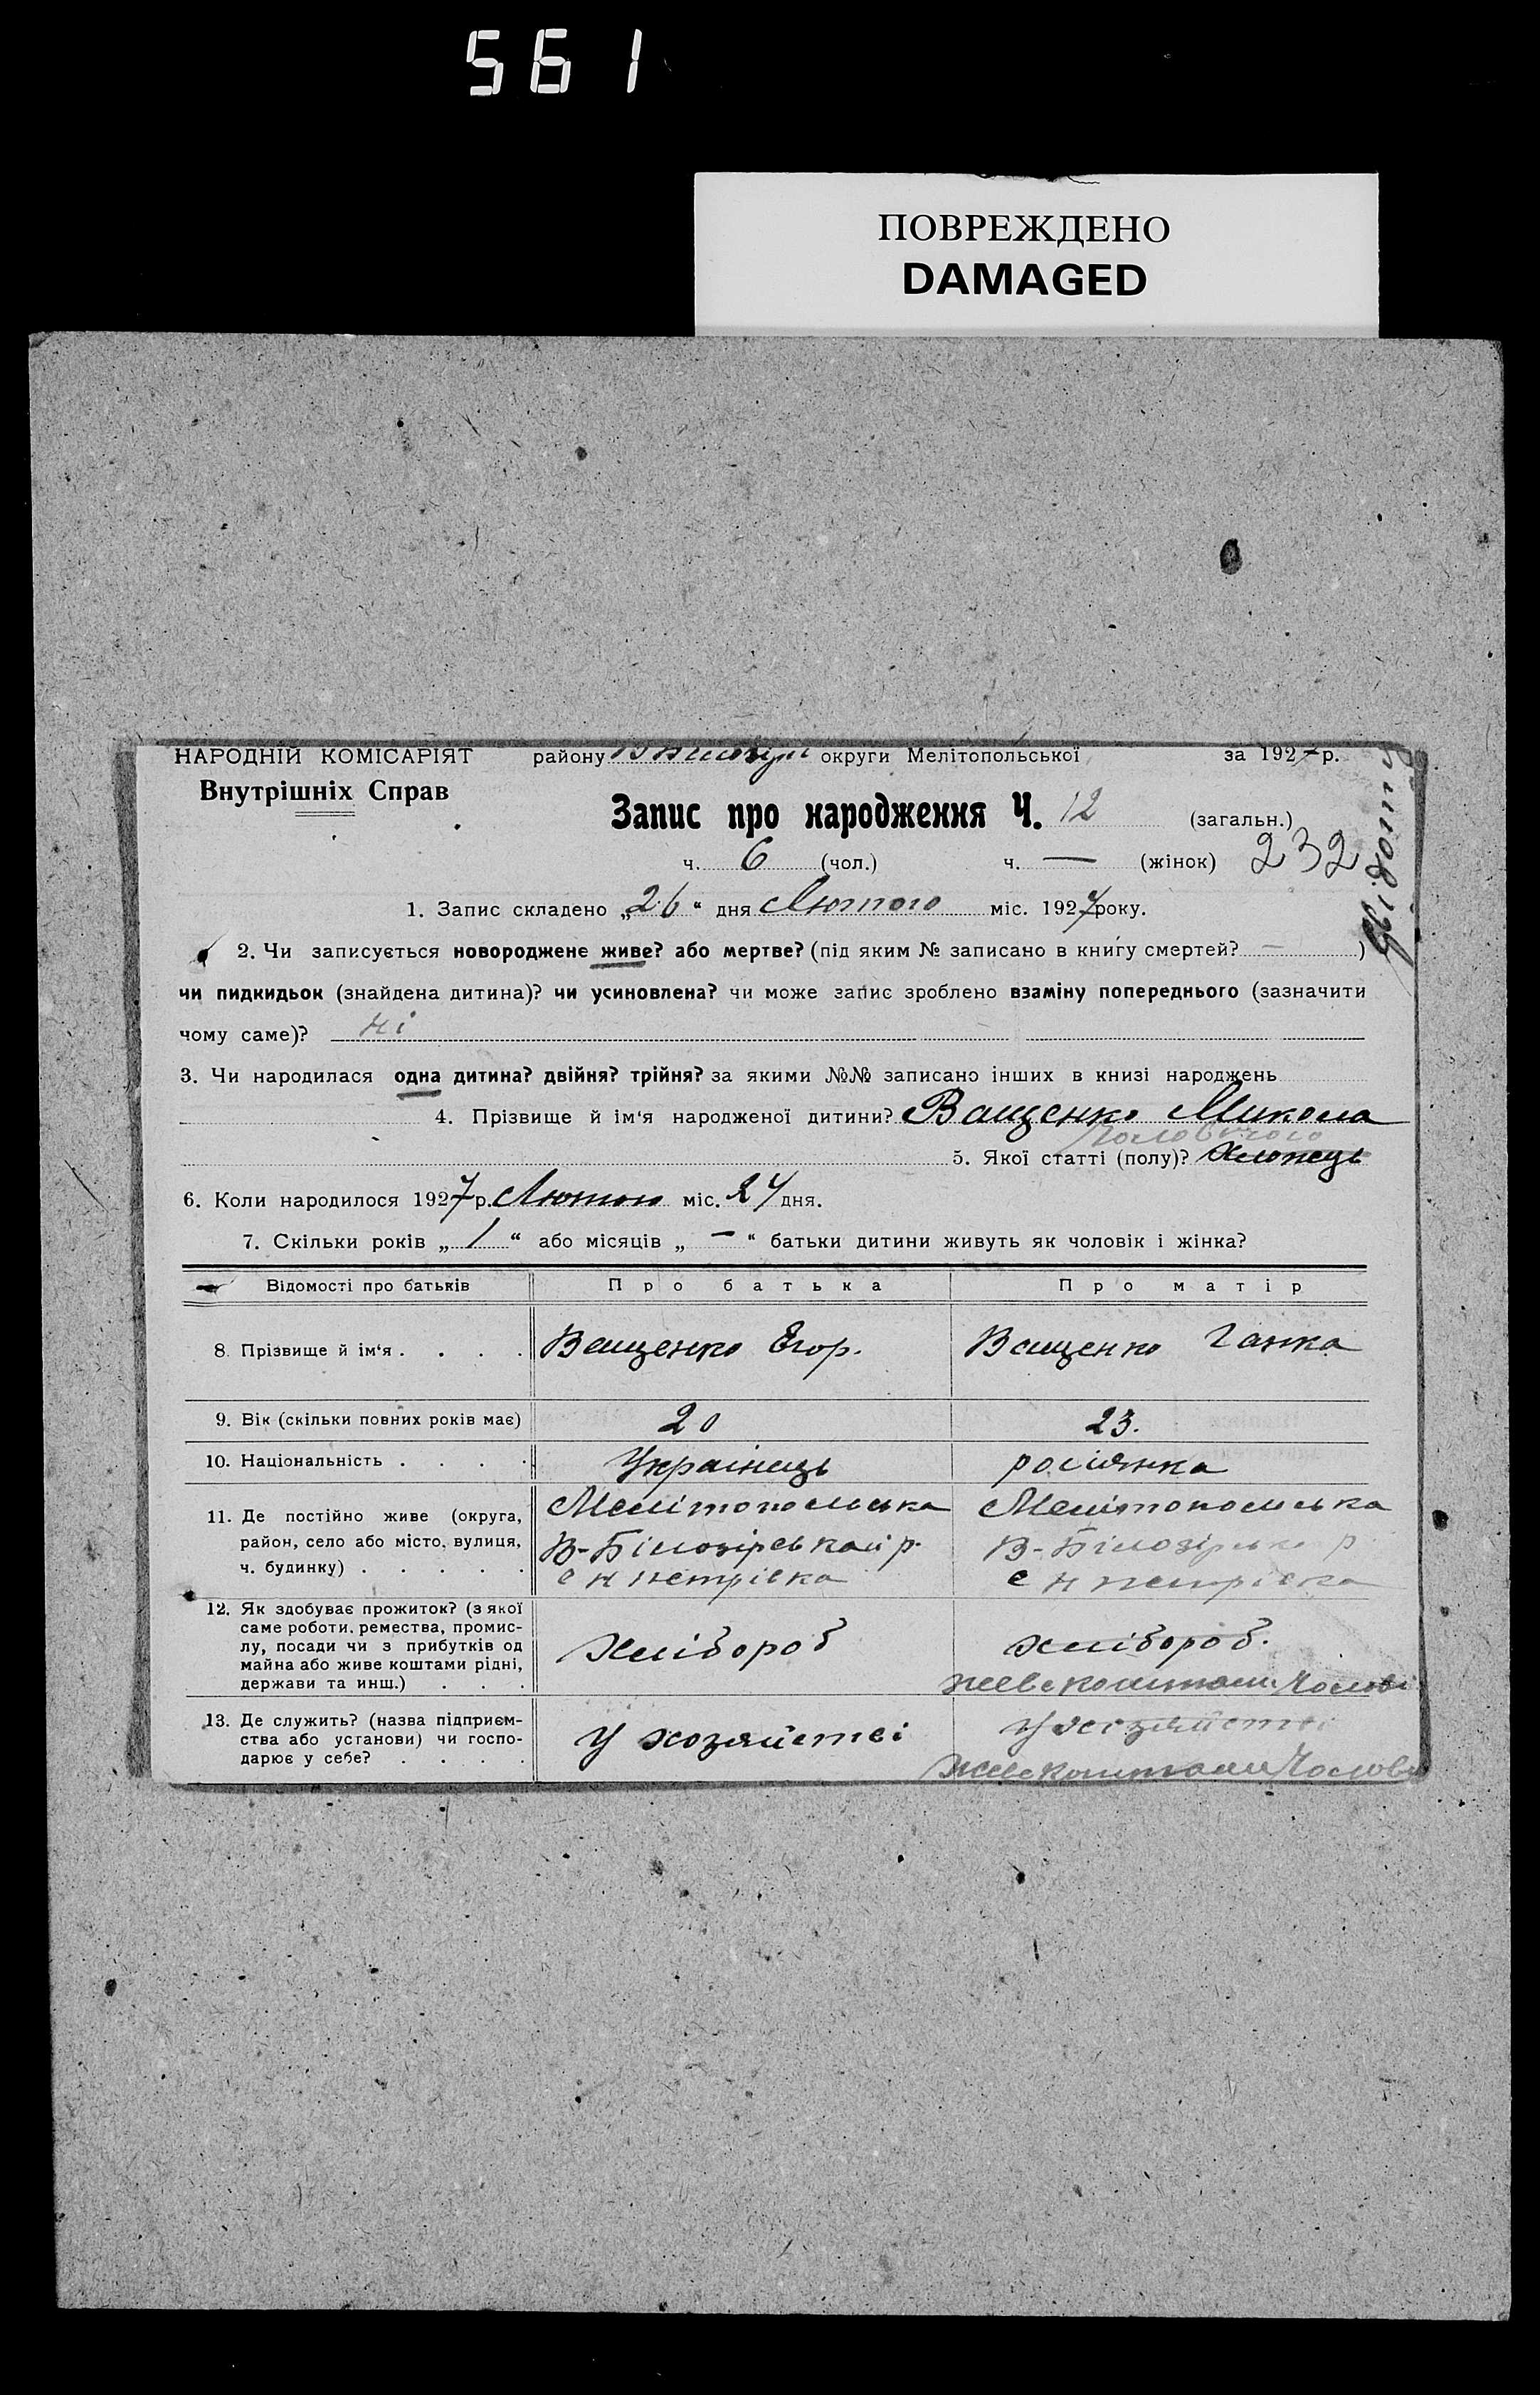 561
ПОВРЕЖДЕНО
DAMAGED
НАРОДНІЙ КОМІСАРІЯТ району округи Мелітопольської за 1927 р.
Внутрішніх Справ
Запис про народження Ч. 12 (загальн.)
ч. 6 (чол.) ч. — (жінок) 232
1. Запис складено „26“ дня Лютого міс. 1927 року.
2. Чи записується новороджене живе? або мертве? (під яким № записано в книгу смертей? — )
чи пидкидьок (знайдена дитина)? чи усиновлена? чи може запис зроблено взаміну попереднього (зазначити
чому саме)? ні
3. Чи народилася одна дитина? двійня? трійня? за якими №№ записано інших в книзі народжень
4. Прізвище й ім'я народженої дитини? Ващенко Микола
чоловічого
5. Якої статті (полу)? Хлопець
6. Коли народилося 1927 р. Лютого міс. 24 дня.
7. Скільки років „ 1 “ або місяців „ — “ батьки дитини живуть як чоловік і жінка?
Відомості про батьків Про батька Про матір
8. Прізвище й ім‘я . . . . Ващенко Егор. Ващенко Ганка
9. Вік (скільки повних років має) 20 23.
10. Національність . . . . Українець росіянка
11. Де постійно живе (округа, Мелітопольська Мелітопольська
район, село або місто, вулиця, В-Білозірський р. В-Білозірсько р
ч. будинку) . . . . . с Н петрівка с Н петрівка
12. Як здобуває прожиток? (з якої
саме роботи, ремества, промис-
лу, посади чи з прибутків од Хлібороб хлібороб.
майна або живе коштами рідні,
держави та инш.) . . . живе коштами Чолові
13. Де служить? (назва підприєм- У хозяйстві
ства або установи) чи госпо- У хозяйстві
дарює у себе? . . . . живе коштами Чолов